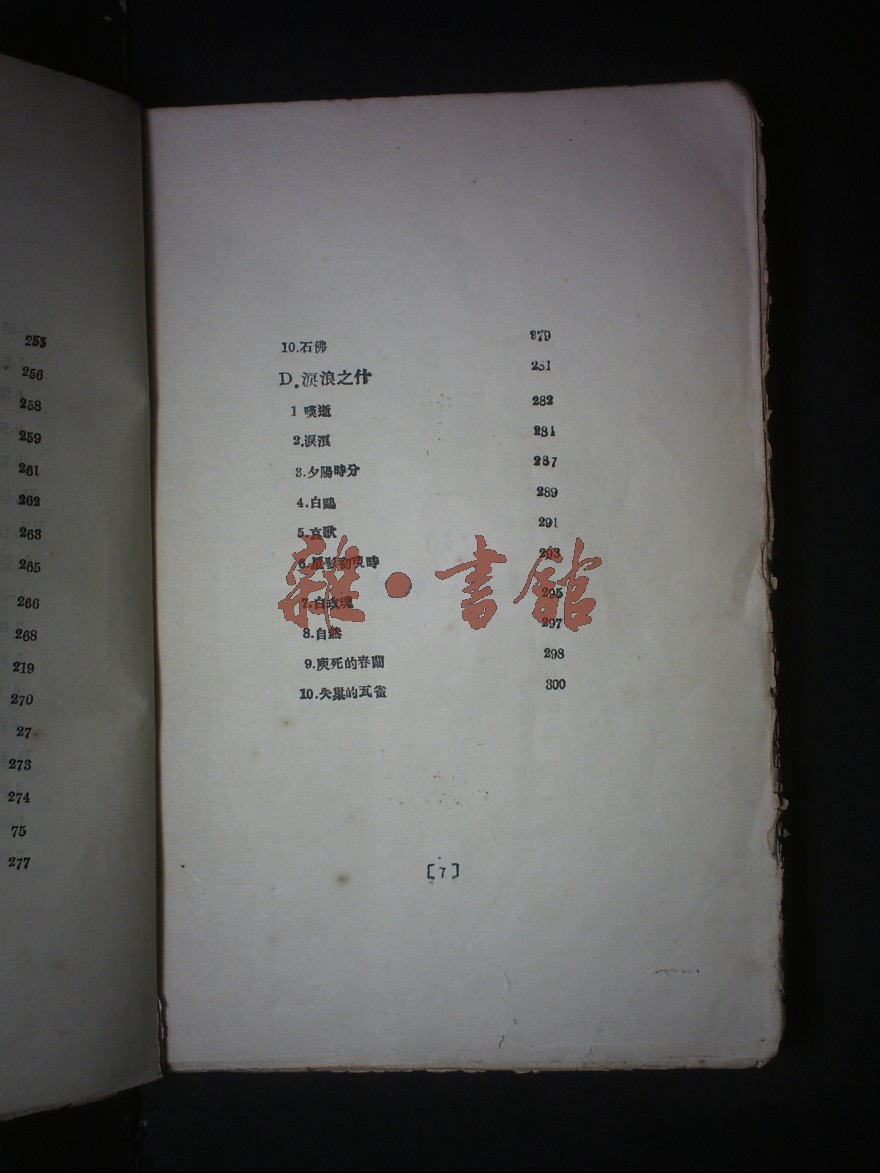 253
256
258
259
261
262
263
265
266
268
219
270
27
273
274
75
277
10.石佛 279
D.淚浪之什 281
1 嘆逝 282
2.淚浪 284
3.夕陽時分 287
4.白鷗 289
5.哀歌 291
6.星影初現時 293
7.白玫瑰 295
8.自然 297
9.庾死的春蘭 298
10.失巢的瓦雀 300
〔7〕
雜·書館